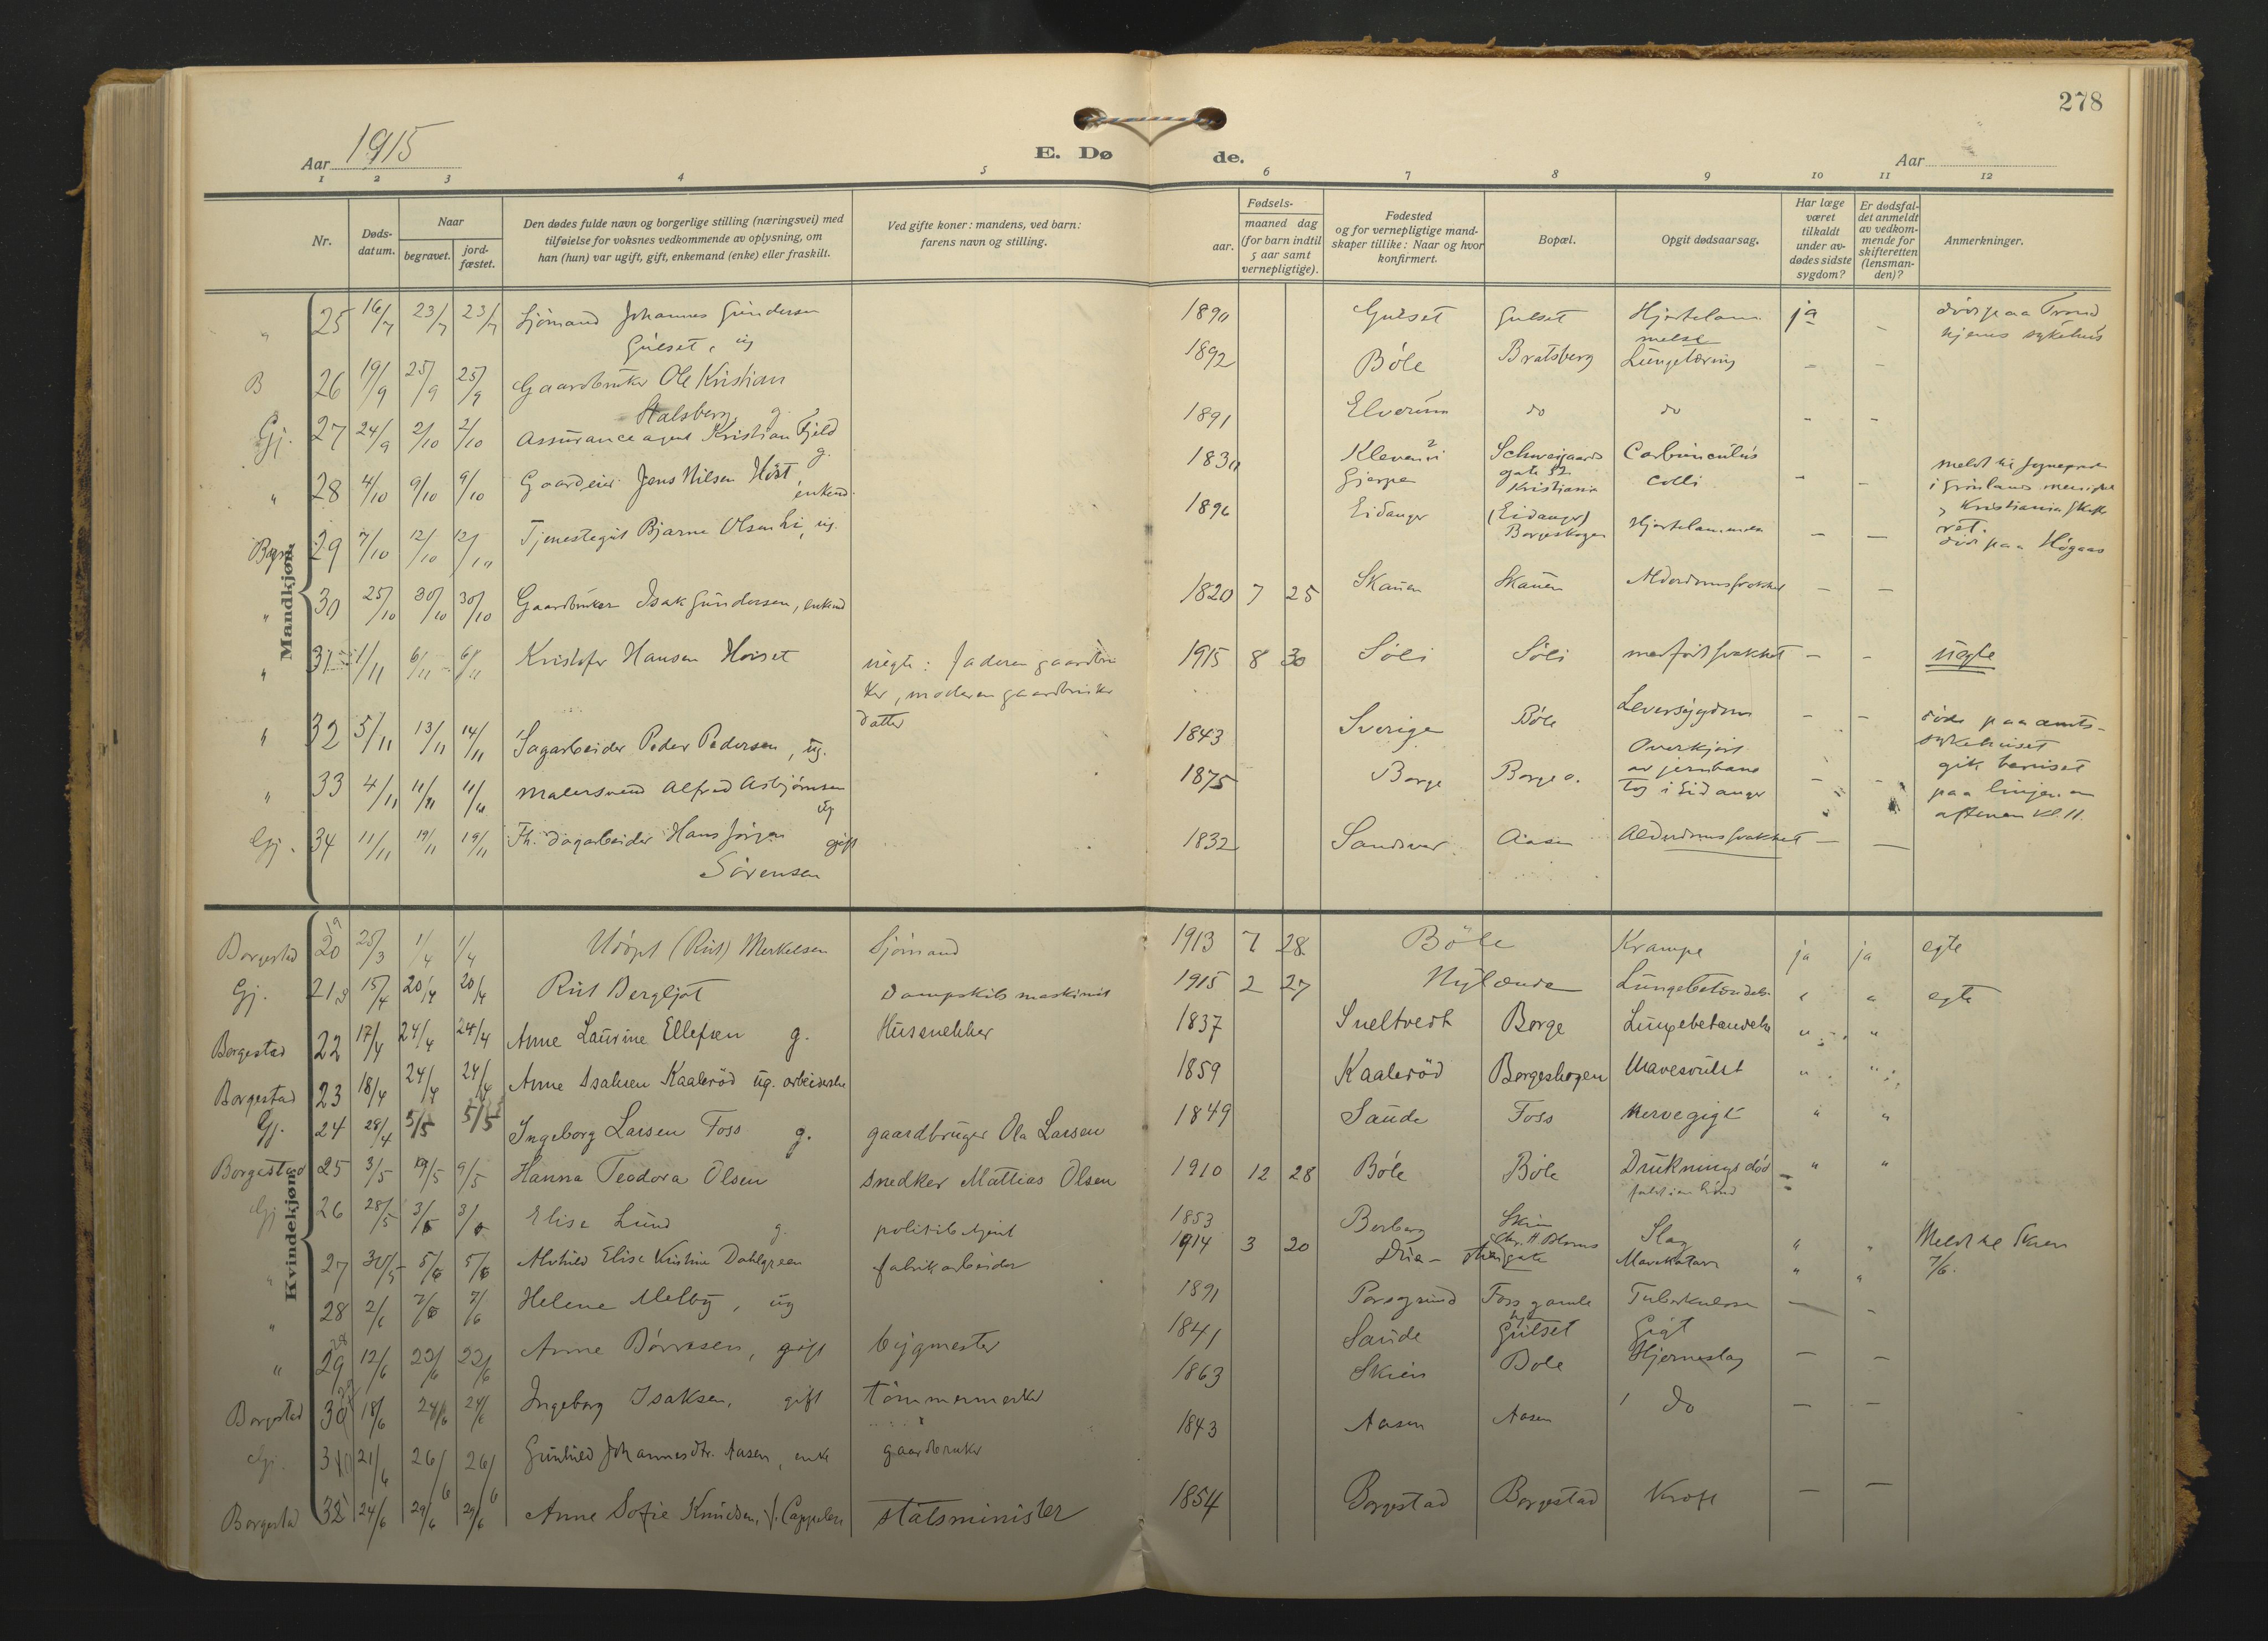 278
Aar 1915
E. Dø de.
Aar
1 2 3 4 5 6 7 8 9 10 11 12
Nr.
Døds-
datum.
Naar
begravet.
jord-
fæstet.
Den dødes fulde navn og borgerlige stilling (næringsvei) med
tilføielse for voksnes vedkommende av oplysning, om
han (hun) var ugift, gift, enkemand (enke) eller fraskilt.
Ved gifte koner: mandens, ved barn:
farens navn og stilling.
Fødsels-
aar.
maaned dag
(for barn indtil
5 aar samt
vernepligtige).
Fødested
og for vernepligtige mand-
skaper tillike: Naar og hvor
konfirmert.
Bopæl.
Opgit dødsaarsag.
Har læge
været
tilkaldt
under av-
dødes sidste
sygdom?
Er dødsfal-
det anmeldt
av vedkom-
mende for
skifteretten
(lensman-
den)?
Anmerkninger.
Mandkjøn.
" 25 16/7 23/7 23/7 Sjömand Johannes Gundersen 1890 Gulset Gulset Hjertelam ja - död paa Trond
Gulset, ug melse hjems sykehus
B 26 19/9 25/9 25/9 Gaardbruker Ole Kristian 1892 Böle Bratsberg Lungetæring - -
Stalsberg g.
Gj. 27 24/9 2/10 2/10 Assuranceagent Kristian Fjeld 1891 Elverum do do - -
g.
" 28 4/10 9/10 9/10 Gaardeier Jens Nilsen Höst 1830 Kleven i Schweigaards Carbunculus - -
enkemd. Gjerpen gate 52 colli
Kristiania Kristiania Skifte
ret.
29 7/10 12/10 12/10 Tjenestegut Bjarne Olsen Li, ug. 1896 Eidanger (Eidanger) Hjertelammelse - - död paa Högaas
Borgeskogen
" 30 25/10 30/10 30/10 Gaardbruker Isak Gundersen, enkemd 1820 7 25 Skauen Skauen Alderdomssvakhet - -
" 31 1/11 6/11 6/11 Kristofer Hansen Hoiset uegte: Faderen gaardbru 1915 8 30 Söli Söli medfödt svakhet - - uegte
ker, moderen gaardbruker
datter
" 32 5/11 13/11 14/11 Sagarbeider Peder Pedersen, ug. 1843 Sverige Böle Leversygdom - - döde paa amts-
sykehuset
" 33 4/11 11/11 11/11 Malersvend Alfred Asbjörnsen 1875 Borge Borge Overkjört - - gik beruset
ug av jernbane paa linjen om
tog i Eidanger aftenen kl. 11.
Gj. 34 11/11 19/11 19/11 Fh. dagarbeider Hans Jörgen gift 1832 Sandsvær Aasen Alderdomssvakhet - -
Sörensen
Kvindekjøn.
Borgestad 20 19 25/3 1/4 1/4 Udöpt (Rut) Merkelsen Sjömand 1913 7 28 Böle Krampe ja ja egte
Gj. 21 15/4 20/4 20/4 Rut Bergljot Dampskibsmaskinist 1915 2 27 Nylænde Lungebetændelse " " egte
Borgestad 22 17/4 24/4 24/4 Anne Laurine Ellefsen g. Hussnekker 1837 Sneltvedt Borge Lungebetændelse " "
Borgestad 23 18/4 24/4 24/4 Anne Isaksen Kaaleröd ug. arbeiderske 1859 Kaaleröd Borgeskogen Mavesvulst " "
Gj. 24 28/4 5/5 5/5 Ingeborg Larsen Foss g. gaardbruger Ola Larsen 1849 Saude Foss Nervegigt " "
Borgestad 25 3/5 9/5 9/5 Hanna Teodora Olsen snedker Mattias Olsen 1910 12 28 Böle Böle Drukningsdöd " "
faldt i en brönd
Gj 26 28/5 3/6 3/6 Elise Lund g. politibetjent 1853 Borberg Skien Slag " " Meldt til Skien
7/6.
" 27 30/5 5/6 5/6 Alvhild Elise Kristine Dahlgreen fabrikarbeider 1914 3 20 Chr. H. Bloms Mavekatarr " "
gate
" 28 2/6 7/6 7/6 Helene Melby, ug 1891 Porsgrund Foss gamle Tuberkulose - -
" 29 28 12/6 22/6 22/6 Anne Börresen, gift bygmester 1841 Saude Gulset Gigt
Borgestad 30 18/6 24/6 24/6 Ingeborg Isaksen, gift tömmermerker 1863 Skien Bole Hjerneslag - -
Gj. 31 21/6 26/6 26/6 Gunhild Johannesdtr. Aasen, enke gaardbruker 1843 Aasen Aasen do - -
Borgestad 32 24/6 29/6 29/6 Anne Sofie Knudsen, f. Cappelen statsminister 1854 Borgestad Borgestad Kræft - -